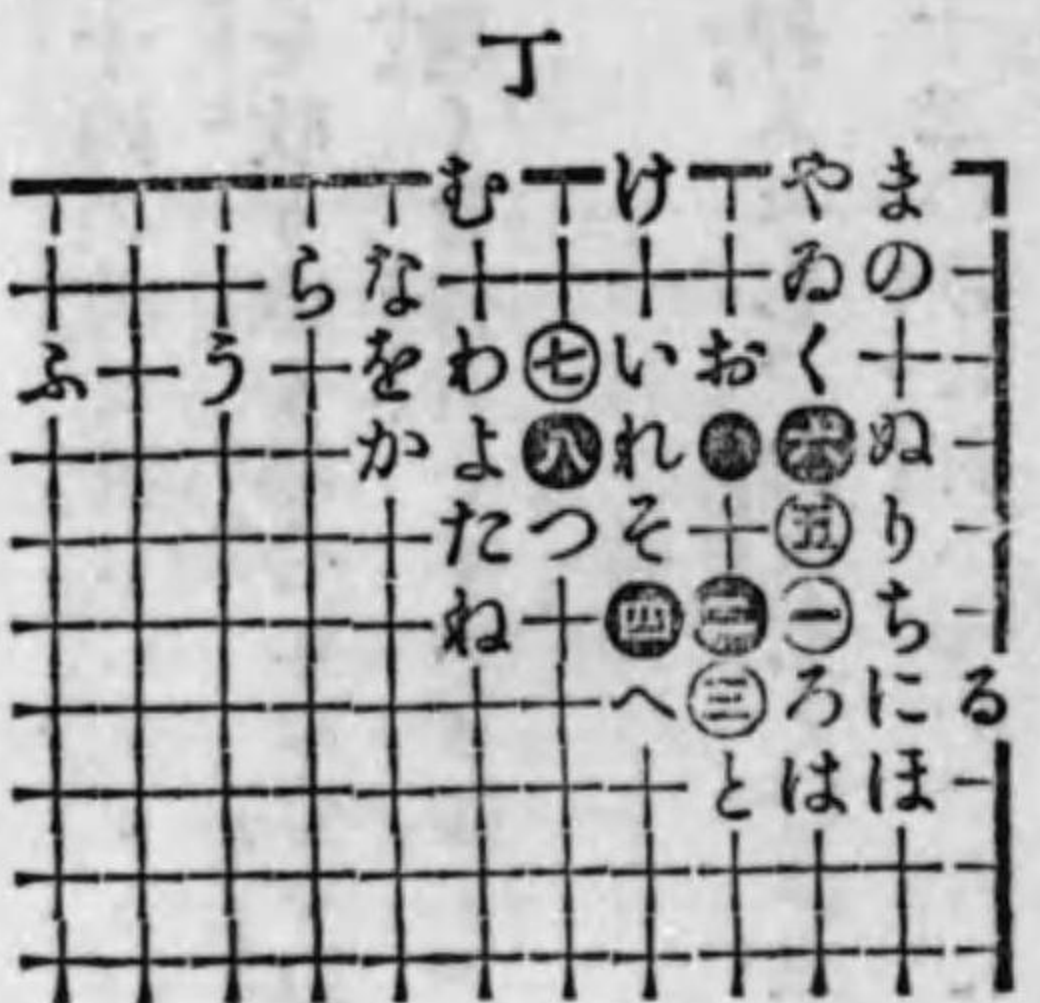 丁
む け や ま
ら な ゐ の
ふ う を わ 七 い お く
か よ 八 れ 六 ぬ
た つ そ 五 り
ね 四 二 一 ち
へ 三 ろ に る
と は ほ